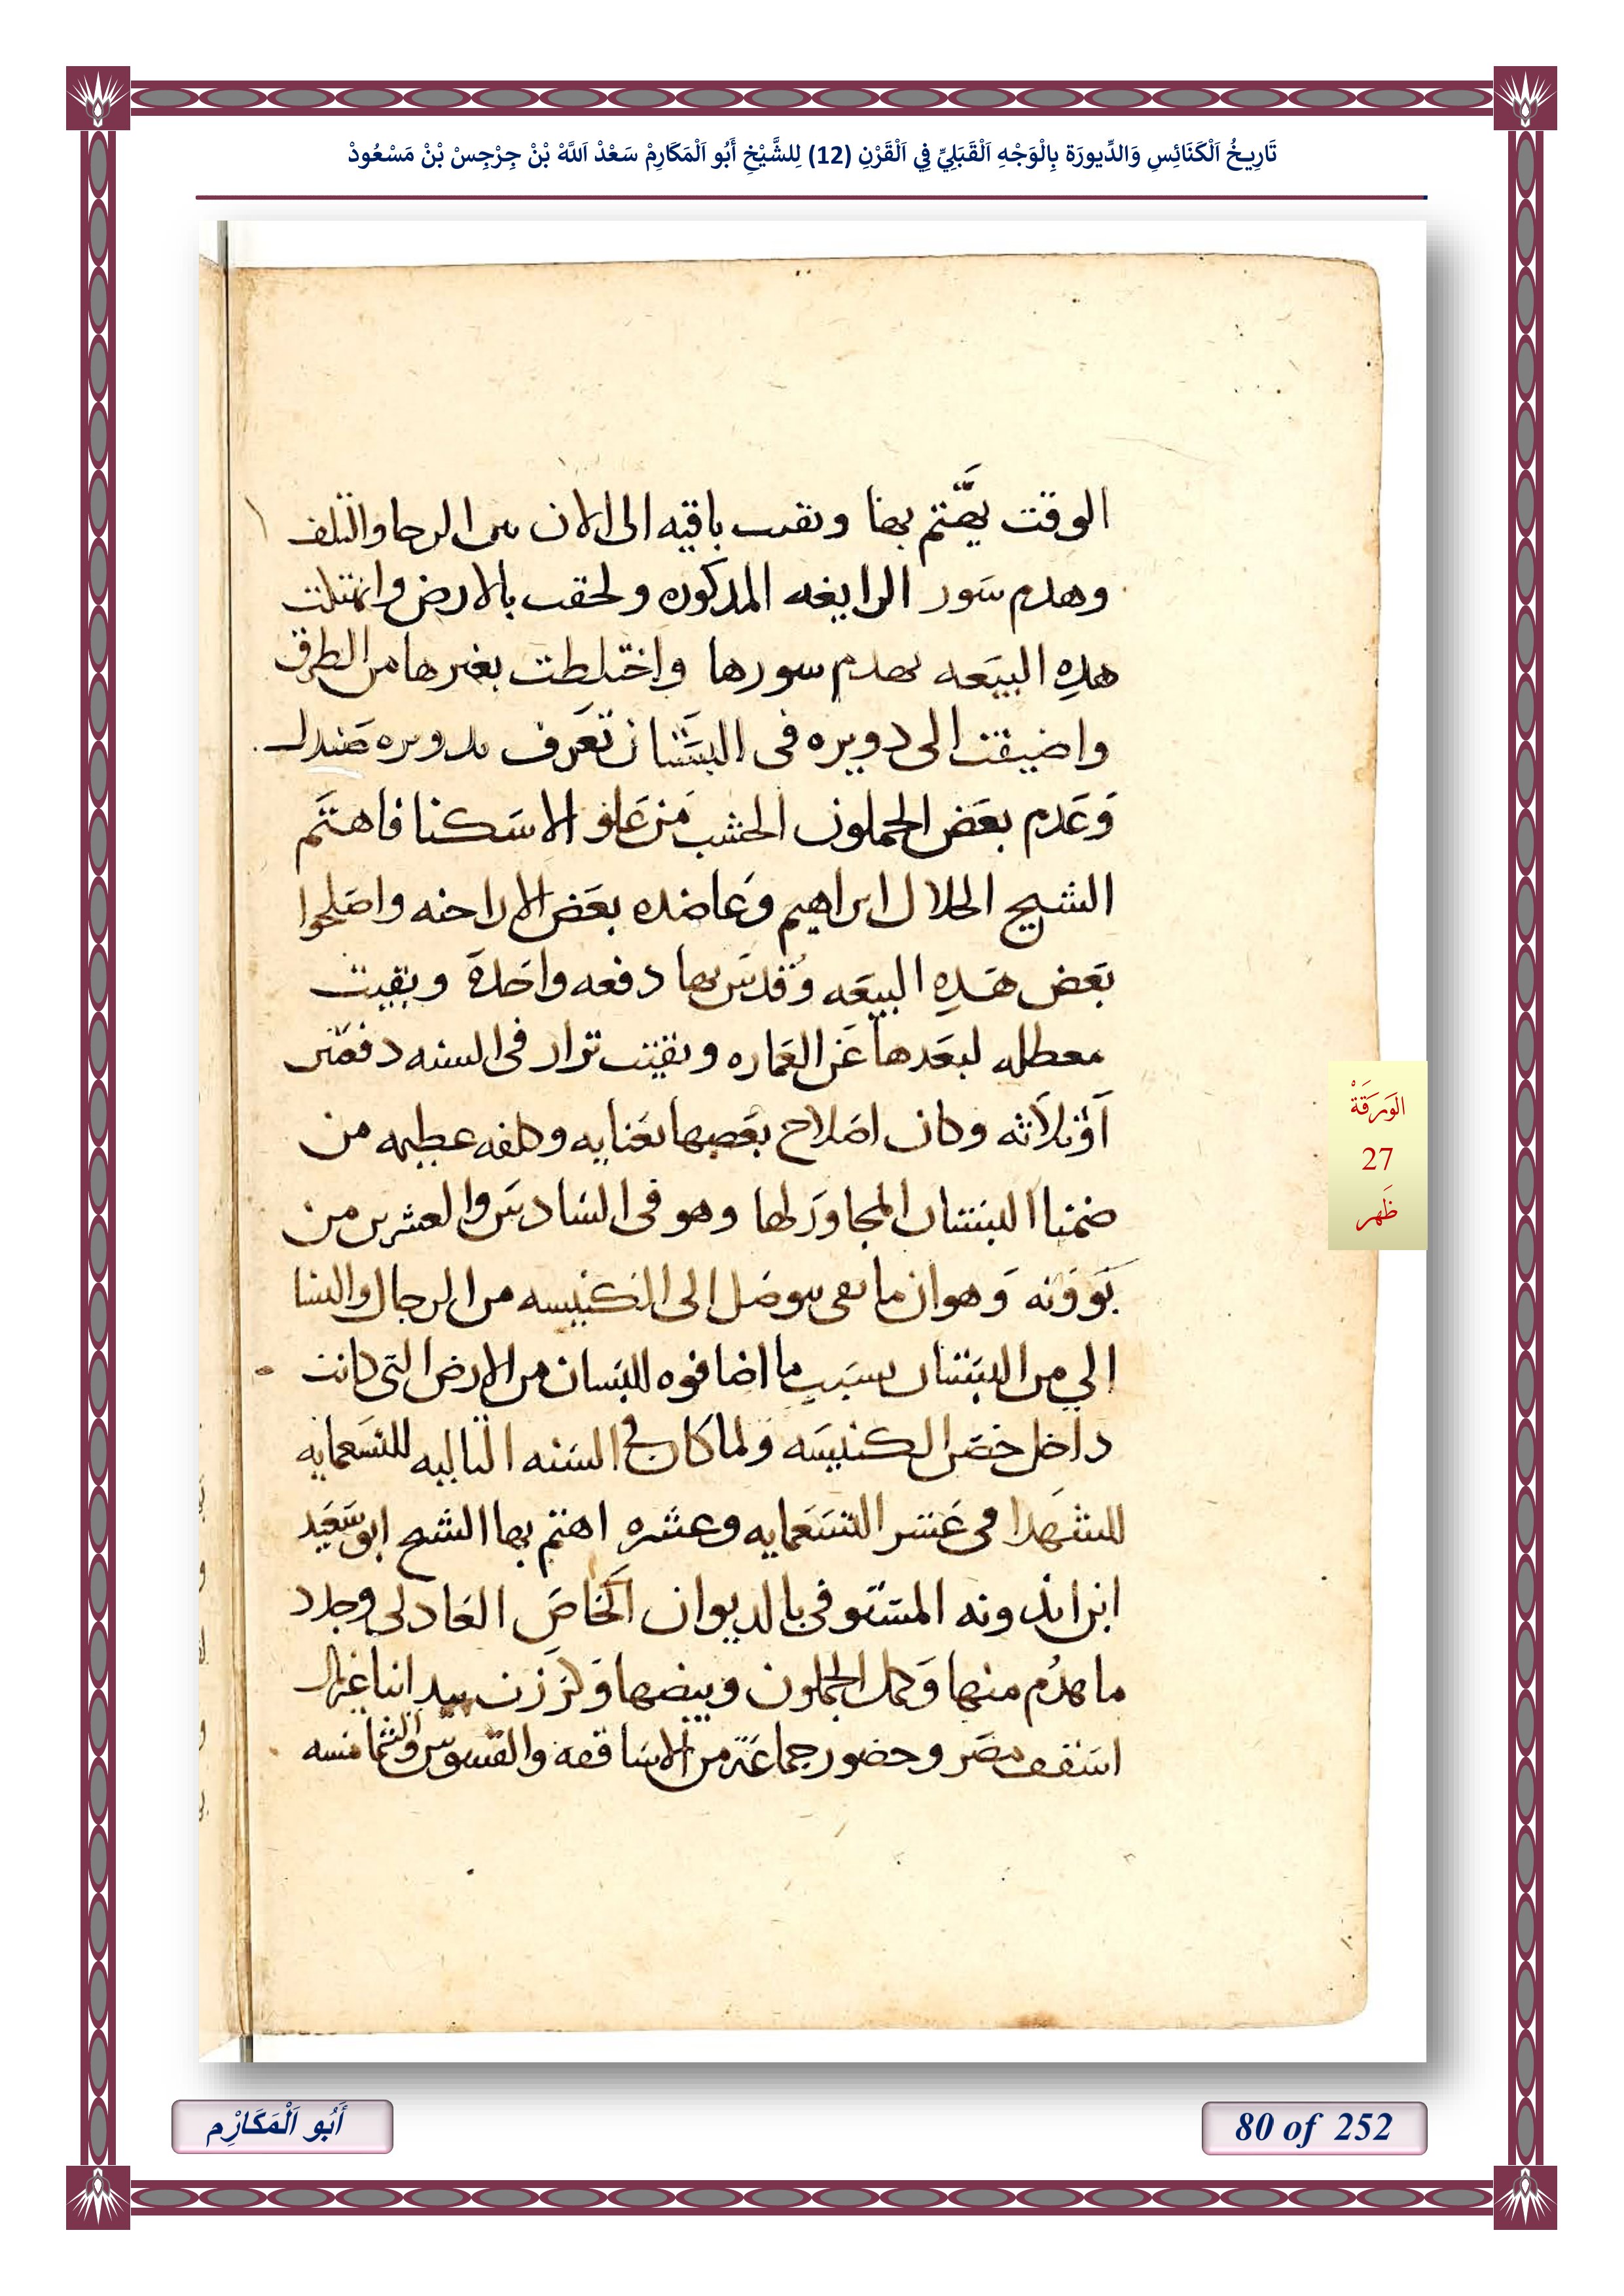 تَارِيخُ اَلْكَنَائِسِ وَالدِّيورَة بِالْوَجْهِ اَلْقَبَلِيِّ فِي اَلْقَرْنِ (12) لِلشَّيْخِ أَبُو اَلْمَكَارِمْ سَعْدْ اَللَّهْ بْنْ جِرْجِسْ بْنْ مَسْعُودْ
الوقت يهتم بها وبقيت باقيه الى الان من الرجا والتلف
وهدم سور الرايغه المدكوره ولحقت بالارض
هده البيعه بهدم سورها واختلطت بغيرها من الطرق
واضيفت الى دويره فى البستان تعرف بدويره صندل
وعدم بعض الجملون الخشب من علو الاسكنا فاهتم
الشيخ الجلال ابراهيم وعاضده بعض الاراخنه واصلحوا
بعض هده البيعه وقدس بها دفعه واحدة وبقيت
معطله لبعدها عن العماره وبقيت تزار فى السنه دفعتين
او ثلاثه وكان اصلاح بعضها بعنايه وكلفه عظيمه من
ضمنا البستان المجاور لها وهو فى السادس والعشرين من
بوونه وهو ان ما بقى يتوصل الى الكنيسه من الرجال والنسا
الي من البستان بسبب ما اضافوه للبستان من الارض التى كانت
داخل حصن الكنيسه ولما كان فى السنه التاليه للتسعمايه
للشهدا فى عشر التسعمايه وعشره اهتم بها الشيخ ابو سعيد
ابن اندونه المستوفى بالديوان الخاص العادلى وجدد
ما هدم منها وكمل الجملون وبيضها وكرزت بيد انبا غبريال
اسقف مصر وحضور جماعة من الاساقفه والقسوس والشمامسه
الوَرَقَةْ
27
ظَهر
أَبُو اَلْمَكَارِْم
80 of 252